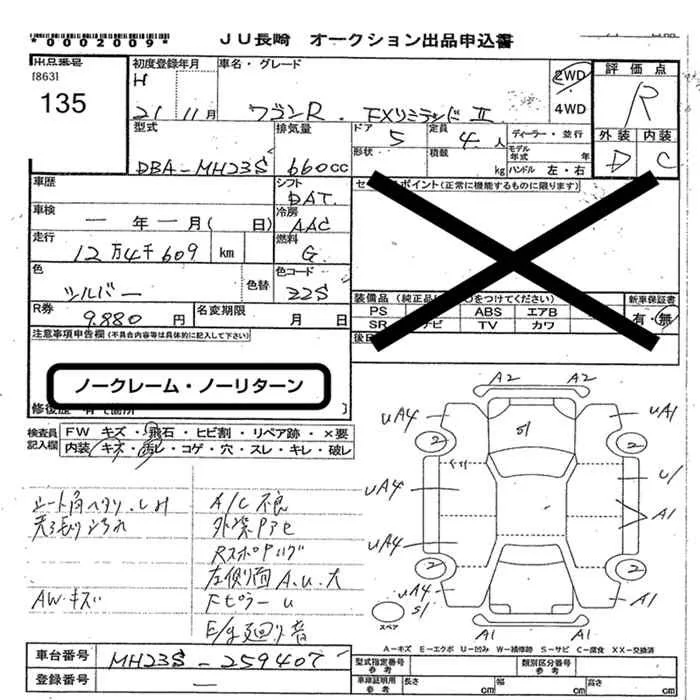 *0002009* JU長崎 オークション出品申込書
出品番号
[863]
135
初度登録年月 車名・グレード
H 21 11月 ワゴンR . FXリミテッド II
2WD
4WD
評価点
R
外装 内装
D C
型式 排気量 ドア 定員
DBA-MH23S 660cc 5 4人
形状 積載 kg
ディーラー・並行
モデル年式 年
ハンドル 左・右
車歴 シフト
DAT
車検 一年一月( 日) 冷房
AAC
走行 12万4千609 km 燃料
G
色 シルバー 色替 色コード
22S
R券 9.880円 名変期限 月 日
セールスポイント(正常に機能するものに限ります)
装備品(純正品に○をつけてください) 新車保証書
PS ABS エアB 有・無
SR ナビ TV カワ
注意事項申告欄(不具合内容等は具体的に記入して下さい)
ノークレーム・ノーリターン
検査員記入欄 FW キズ・飛石・ヒビ割・リペア跡・×要
内装・キズ・汚レ・コゲ・穴・スレ・キレ・破レ
シート角ヘタリ.シミ
天張り汚れ
AW・キズ
A/C不良
外装アセ
左側面A.U.大
Fピラーu
A2 A2
UA4 UA1
S1
2 2
UA4 U1
A1
UA4
2 2
UA4 S1 A1
A1 A1
スペア
A-キズ E-エクボ U-凹み W-補修跡 S-サビ C-腐食 XX-交換済
車台番号 MH23S-259407
登録番号 —
型式指定番号 参考 類別区分番号 参考
車庫証明用 参考 長さ cm 幅 cm 高さ cm